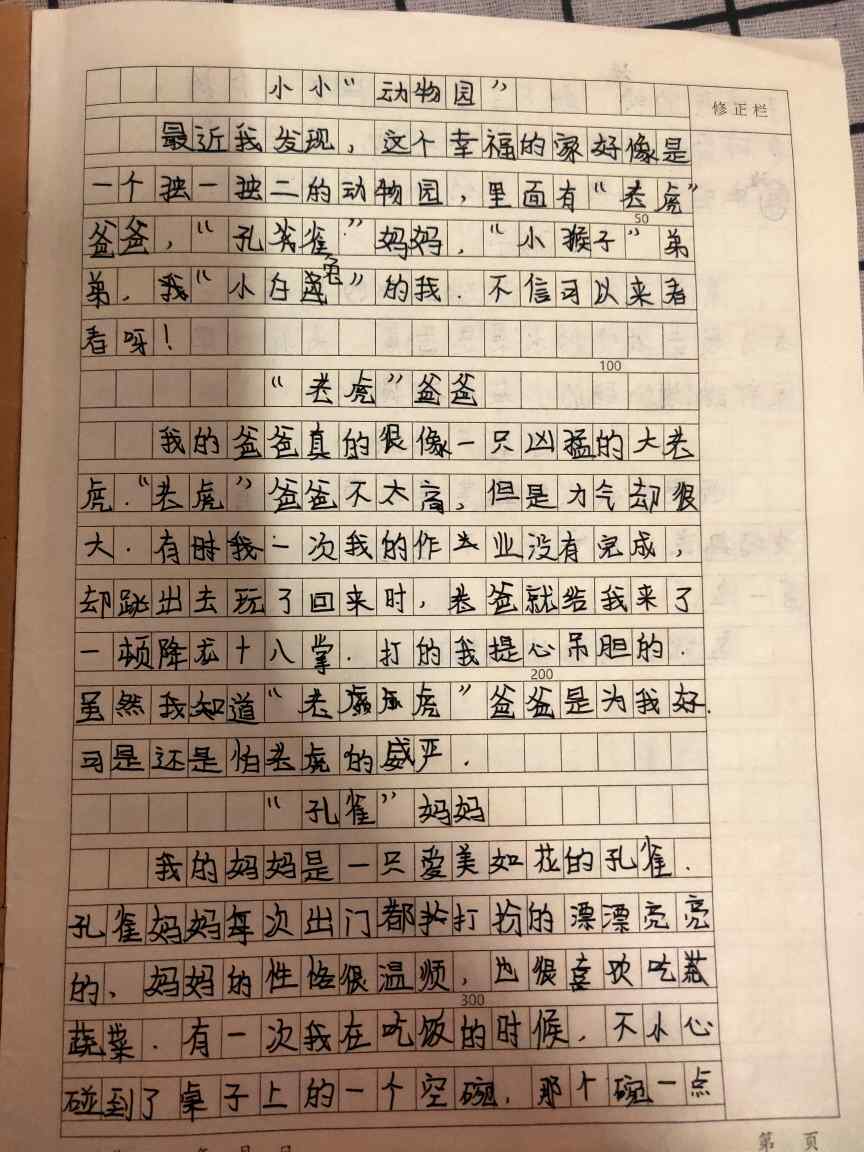 小小“动物园”
修正栏
最近我发现，这个幸福的家好像是
一个独一独二的动物园，里面有“老虎”
50
爸爸，“孔雀”妈妈，“小猴子”弟
弟，我“小白兔”的我．不信可以来看
看呀！
100
“老虎”爸爸
我的爸爸真的很像一只凶猛的大老
虎．“老虎”爸爸不太高，但是力气却很
大．有一次我的作业没有完成，
却跳出去玩了回来时，老爸就给我来了
一顿降龙十八掌．打的我提心吊胆的．
200
虽然我知道“老虎”爸爸是为我好．
可是还是怕老虎的威严．
“孔雀”妈妈
我的妈妈是一只爱美如花的孔雀．
孔雀妈妈每次出门都打扮的漂漂亮亮
的、妈妈的性格很温顺，也很喜欢吃
300
蔬菜．有一次我在吃饭的时候，不小心
碰到了桌子上的一个空碗，那个碗一点
年 月 日
第 页